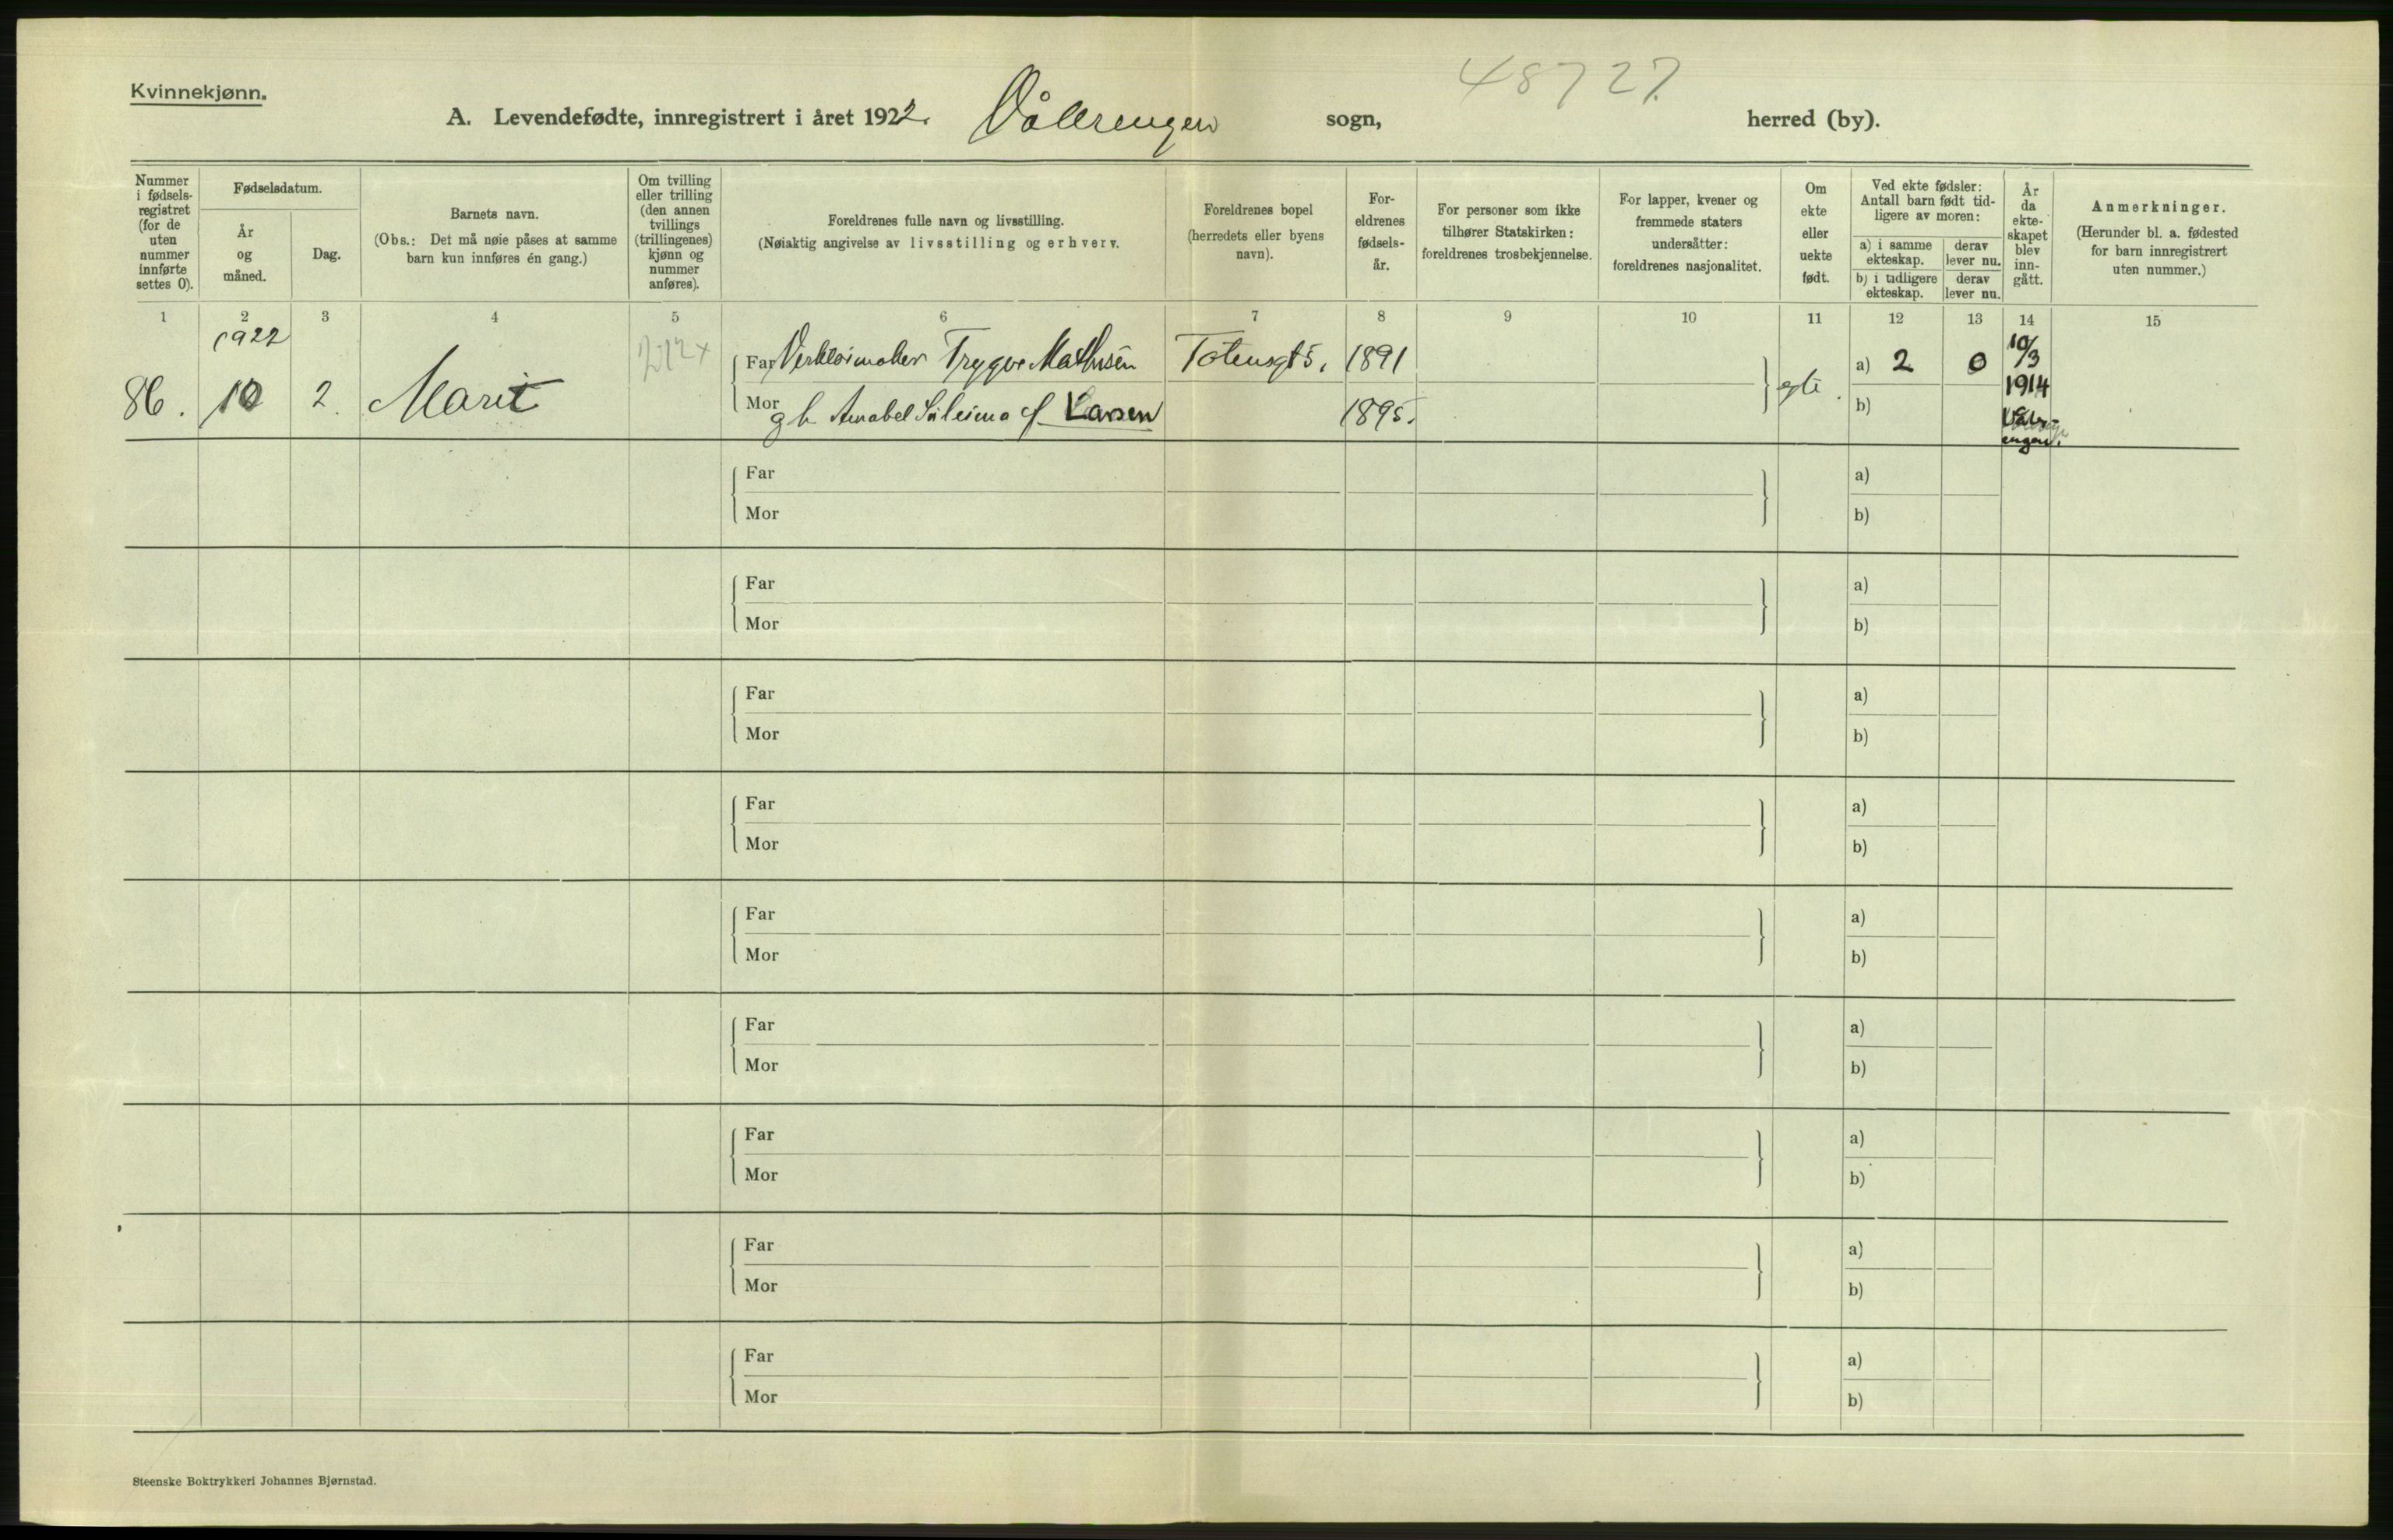 Kvinnekjønn.
A. Levendefødte, innregistrert i året 1922. Vålerengen sogn, herred (by).
48727.
Nummer i fødselsregistret (for de uten nummer innførte settes 0).
Fødselsdatum.
År og måned.
Dag.
Barnets navn.
(Obs.: Det må nøie påses at samme barn kun innføres én gang.)
Om tvilling eller trilling (den annen tvillings (trillingenes) kjønn og nummer anføres).
Foreldrenes fulle navn og livsstilling.
(Nøiaktig angivelse av livsstilling og erhverv.
Foreldrenes bopel (herredets eller byens navn).
Foreldrenes fødselsår.
For personer som ikke tilhører Statskirken: foreldrenes trosbekjennelse.
For lapper, kvener og fremmede staters undersåtter: foreldrenes nasjonalitet.
Om ekte eller uekte født.
Ved ekte fødsler: Antall barn født tidligere av moren:
a) i samme ekteskap.
derav lever nu.
b) i tidligere ekteskap.
derav lever nu.
År da ekteskapet blev inngått.
Anmerkninger.
(Herunder bl. a. fødested for barn innregistrert uten nummer.)
1 2 3 4 5 6 7 8 9 10 11 12 13 14 15
1922
86. 10 2. Marit
Far Verktøimaker Trygve Mathisen Totengt 5. 1891
Mor g h Amabel f. Larsen 1895.
egte.
a) 2 0
b)
10/3
1914
Vålerengen.
Far a)
Mor b)
Far a)
Mor b)
Far a)
Mor b)
Far a)
Mor b)
Far a)
Mor b)
Far a)
Mor b)
Far a)
Mor b)
Far a)
Mor b)
Far a)
Mor b)
Steenske Boktrykkeri Johannes Bjørnstad.